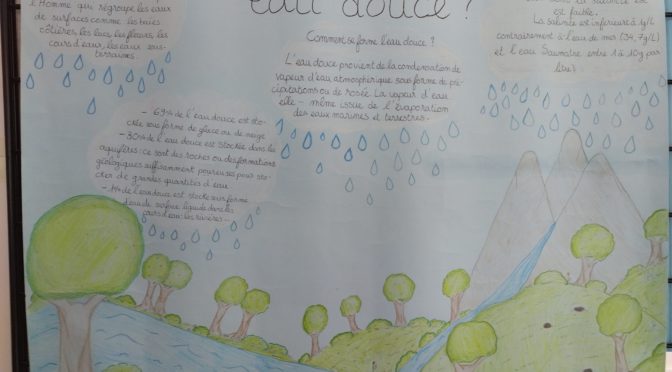 l'Homme qui régroupe les eaux
de surfaces comme les baies
côtières, les lacs, les fleuves, les
cours d'eaux, les eaux sous-
terraines.
eau douce ?
est faible.
La salinité est inférieure à 1g/L
contrairement à l'eau de mer (34,7g/L)
et l'eau Saumatre entre 1 à 10g par
litre)
Comment se forme l'eau douce ?
L'eau douce provient de la condensation de
vapeur d'eau atmosphérique sous forme de pré-
cipitations ou de rosée. La vapeur d'eau
elle-même issue de l'évaporation
des eaux marines et terrestres.
- 69% de l'eau douce est sto-
ckée sous forme de glace ou de neige
- 30% de l'eau douce est stockée dans les
aquifères : ce sont des roches ou des formations
géologiques suffisamment poreuses pour sto-
cker de grandes quantités d'eau
- 1% de l'eau douce est stockée sous forme
d'eau de surface liquide dans les
cours d'eau : les rivières...